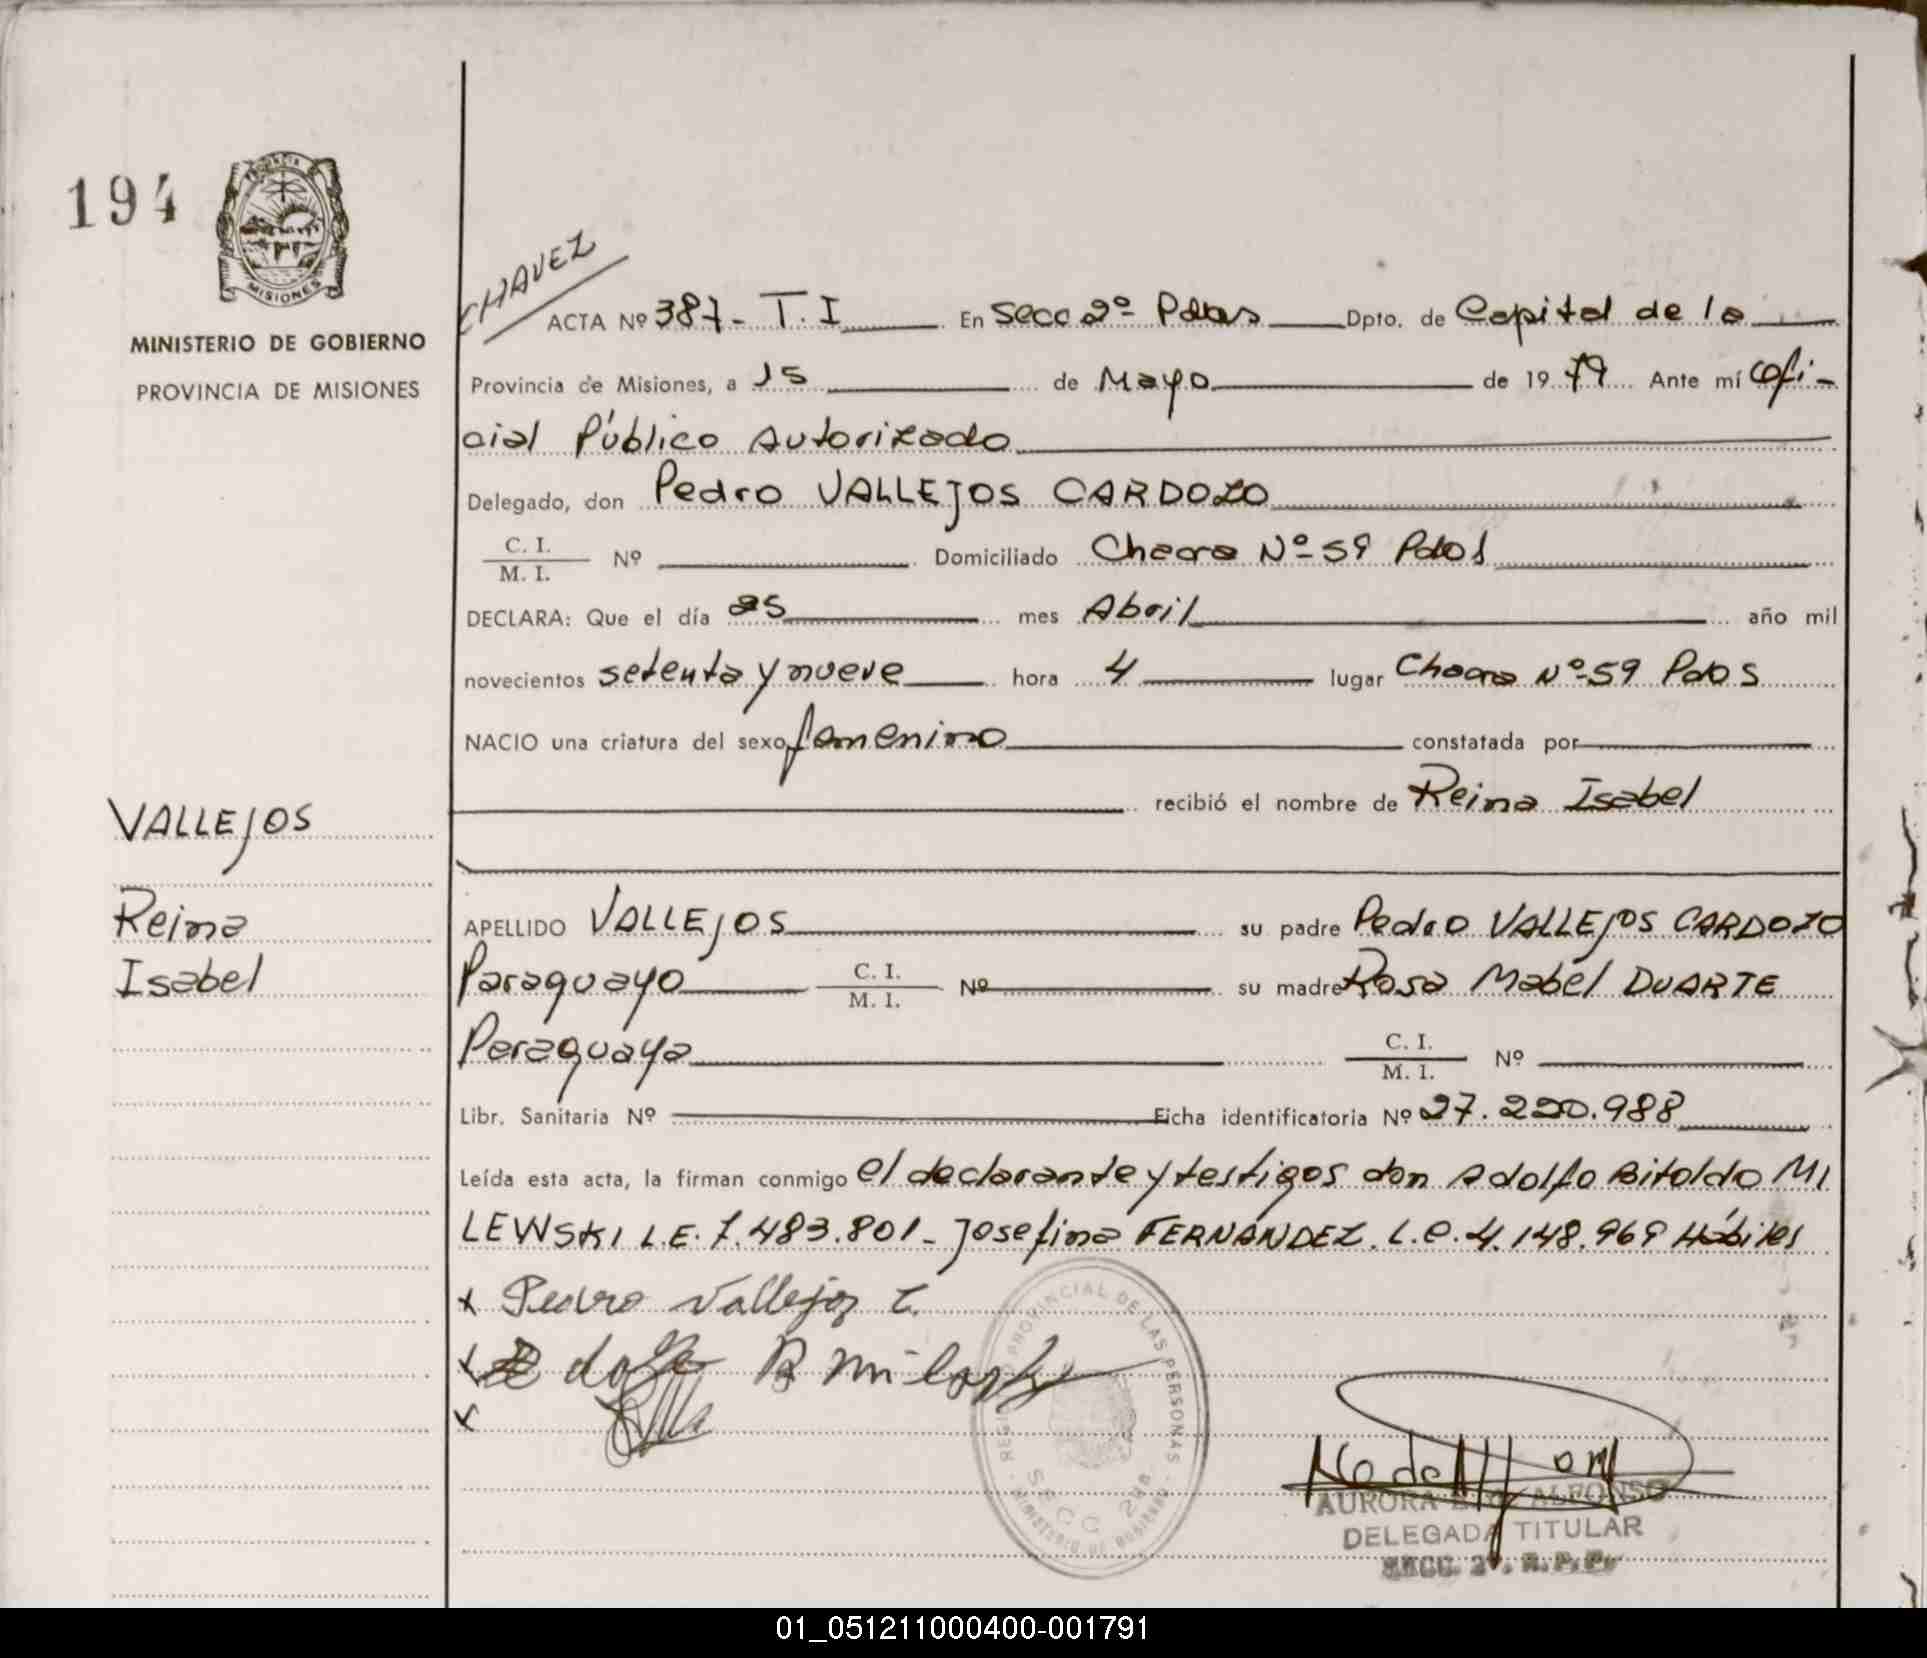 194
PROVINCIA
MISIONES
MINISTERIO DE GOBIERNO
PROVINCIA DE MISIONES
CHAVEZ
ACTA Nº 387- T.I En Secc 2º Pdas Dpto. de Capital de la
Provincia de Misiones, a 15 de Mayo de 1979 Ante mí Ofi-
cial Público Autorizado
Delegado, don Pedro VALLEJOS CARDOZO
C. I.
M. I. Nº Domiciliado Chacra Nº 59 Pdas
DECLARA: Que el día 25 mes Abril año mil
novecientos setenta y nueve hora 4 lugar Chacra Nº 59 Pdas
NACIO una criatura del sexo femenino constatada por
recibió el nombre de Reina Isabel
VALLEJOS
Reina
Isabel
APELLIDO VALLEJOS su padre Pedro VALLEJOS CARDOZO
Paraguayo C. I. M. I. Nº su madre Rosa Mabel DUARTE
Paraguaya C. I. M. I. Nº
Libr. Sanitaria Nº Ficha identificatoria Nº 27.220.988
Leída esta acta, la firman conmigo el declarante y testigos don Adolfo Bitoldo MI
LEWSKI L.E. 7.483.801- Josefina FERNÁNDEZ. L.C. 4.148.969 Hábiles
x Pedro Vallejos C.
x
x
REGISTRO PROVINCIAL DE LAS PERSONAS
SECC 2da
MINISTERIO DE GOBIERNO
AURORA ALFONSO
DELEGADA TITULAR
SECC. 2ª. R.P.P.
01_051211000400-001791